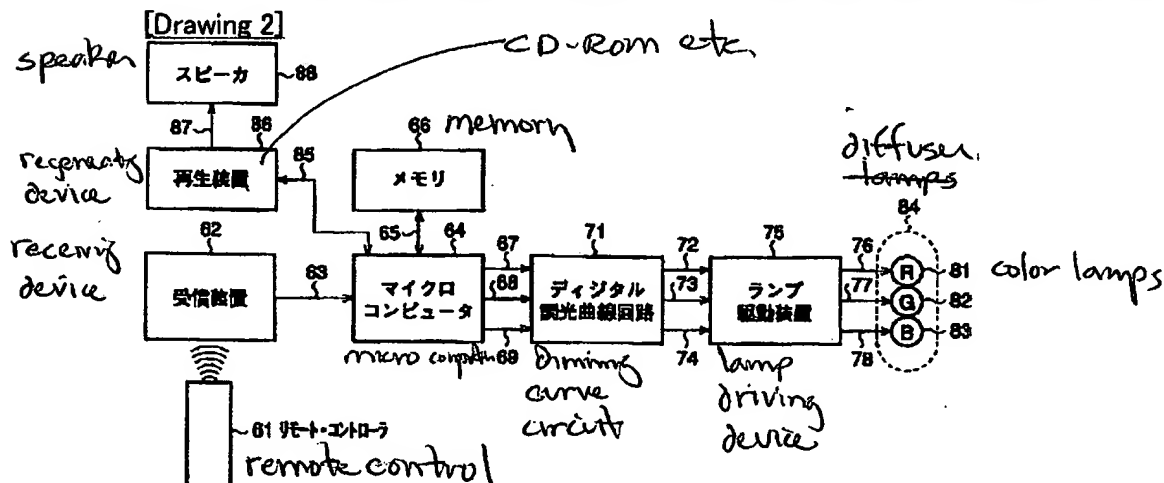 [Drawing 2]
CD-Rom etc.
speaker
スピーカ
88
87
86
66 memory
regenerating device
再生装置
85
メモリ
diffuser
lamps
84
receiving device
62
受信装置
63
65
64
マイクロ
コンピュータ
micro computer
67
68
69
71
ディジタル
調光曲線回路
dimming
curve
circuit
72
73
74
75
ランプ
駆動装置
lamp
driving
device
76
77
78
R
81
G
82
B
83
color lamps
61 リモート・コントローラ
remote control